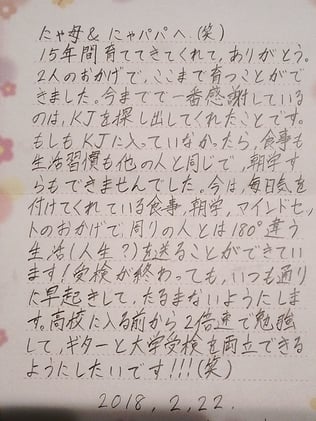 にゃ母&にゃパパへ.(笑)
15年間育ててきてくれて,ありがとう。
2人のおかげで,ここまで育つことがで
きました。今までで一番感謝している
のは,KJを探し出してくれたことです。
もしもKJに入っていなかったら,食事も
生活習慣も他の人と同じで,朝学す
らもできませんでした。今は,毎日気を
付けてくれている食事,朝学,マインドセッ
トのおかげで,周りの人とは180°違う
生活(人生?)を送ることができてい
ます!受検が終わっても,いつも通り
に早起きして,たるまないようにしま
す。高校に入る前から2倍速で勉強
して,ギターと大学受検を両立できる
ようにしたいです!!!(笑)
2018,2,22.